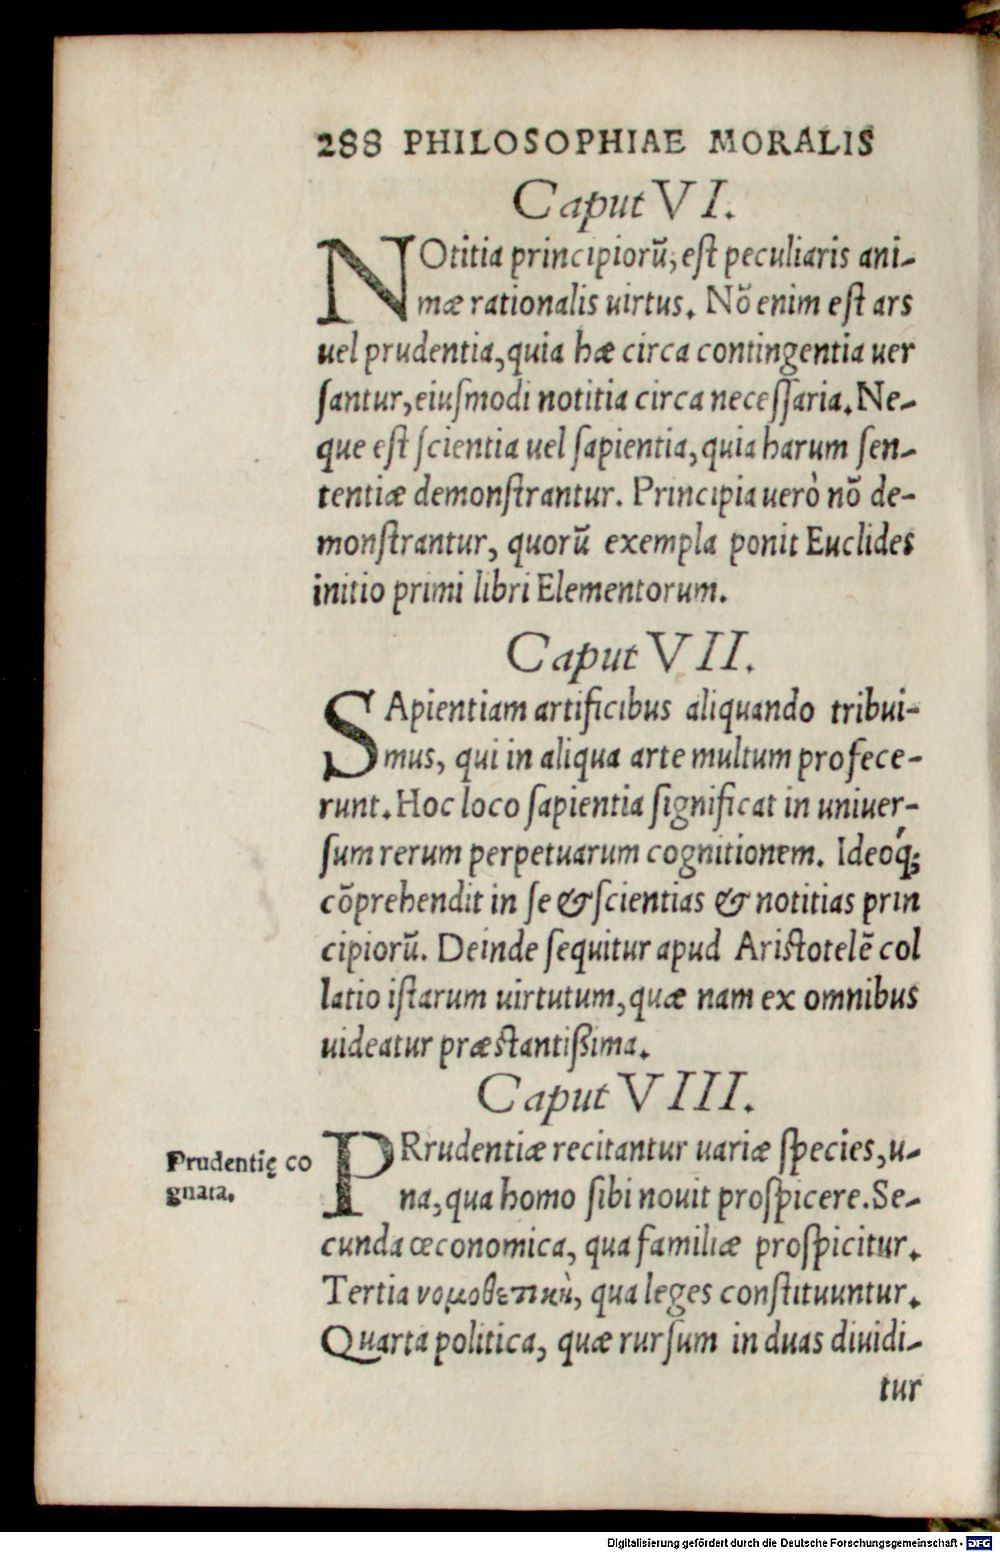 288 PHILOSOPHIAE MORALIS
Caput VI.
NOtitia principiorũ, est peculiaris ani-
mæ rationalis uirtus. Nõ enim est ars
uel prudentia, quia hæ circa contingentia uer
santur, eiusmodi notitia circa necessaria. Ne-
que est scientia uel sapientia, quia harum sen-
tentiæ demonstrantur. Principia uerò nõ de-
monstrantur, quorũ exempla ponit Euclides
initio primi libri Elementorum.
Caput VII.
SApientiam artificibus aliquando tribui-
mus, qui in aliqua arte multum profece-
runt. Hoc loco sapientia significat in uniuer-
sum rerum perpetuarum cognitionem. Ideoq́;
cõprehendit in se & scientias & notitias prin
cipiorũ. Deinde sequitur apud Aristotelẽ col
latio istarum uirtutum, quæ nam ex omnibus
uideatur præstantißima.
Caput VIII.
Prudentię co
gnata.
PRrudentiæ recitantur uariæ species, u-
na, qua homo sibi nouit prospicere. Se-
cunda œconomica, qua familiæ prospicitur.
Tertia νομοθετικὴ, qua leges constituuntur.
Quarta politica, quæ rursum in duas diuidi-
tur
Digitalisierung gefördert durch die Deutsche Forschungsgemeinschaft - DFG